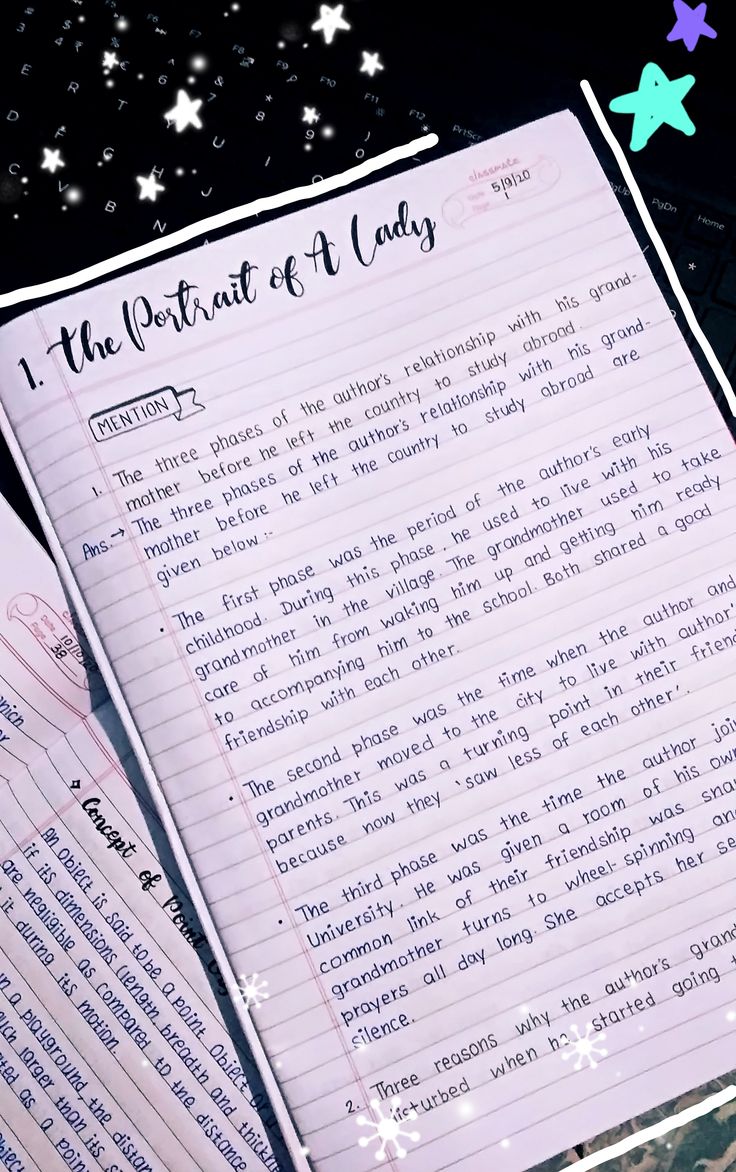 classmate
Date 5/9/20
Page 1
1. The Portrait of A Lady
MENTION
1. The three phases of the author's relationship with his grand-
mother before he left the country to study abroad.
Ans.→ The three phases of the author's relationship with his grand-
mother before he left the country to study abroad are
given below :-
• The first phase was the period of the author's early
childhood. During this phase, he used to live with his
grandmother in the village. The grandmother used to take
care of him from waking him up and getting him ready
to accompanying him to the school. Both shared a good
friendship with each other.
• The second phase was the time when the author and
grandmother moved to the city to live with author'
parents. This was a turning point in their friend
because now they 'saw less of each other'.
• The third phase was the time the author joi
University. He was given a room of his own
common link of their friendship was sna
grandmother turns to wheel-spinning an
prayers all day long. She accepts her se
silence.
2. Three reasons why the author's grand
disturbed when he started going t
Date 10/10
Page 38
Concept of Point
An object is said to be a point object
if its dimensions (length, breadth and thickn
are negligible as compared to the distance
it during its motion.
in a playground, the distan
much larger than its s
as a poin
E R T 6 7 U 8 9 I O
D F G H J
C V B N
F6 F8 F9 F10 F11 F12 PrtSc
PgUp PgDn Home